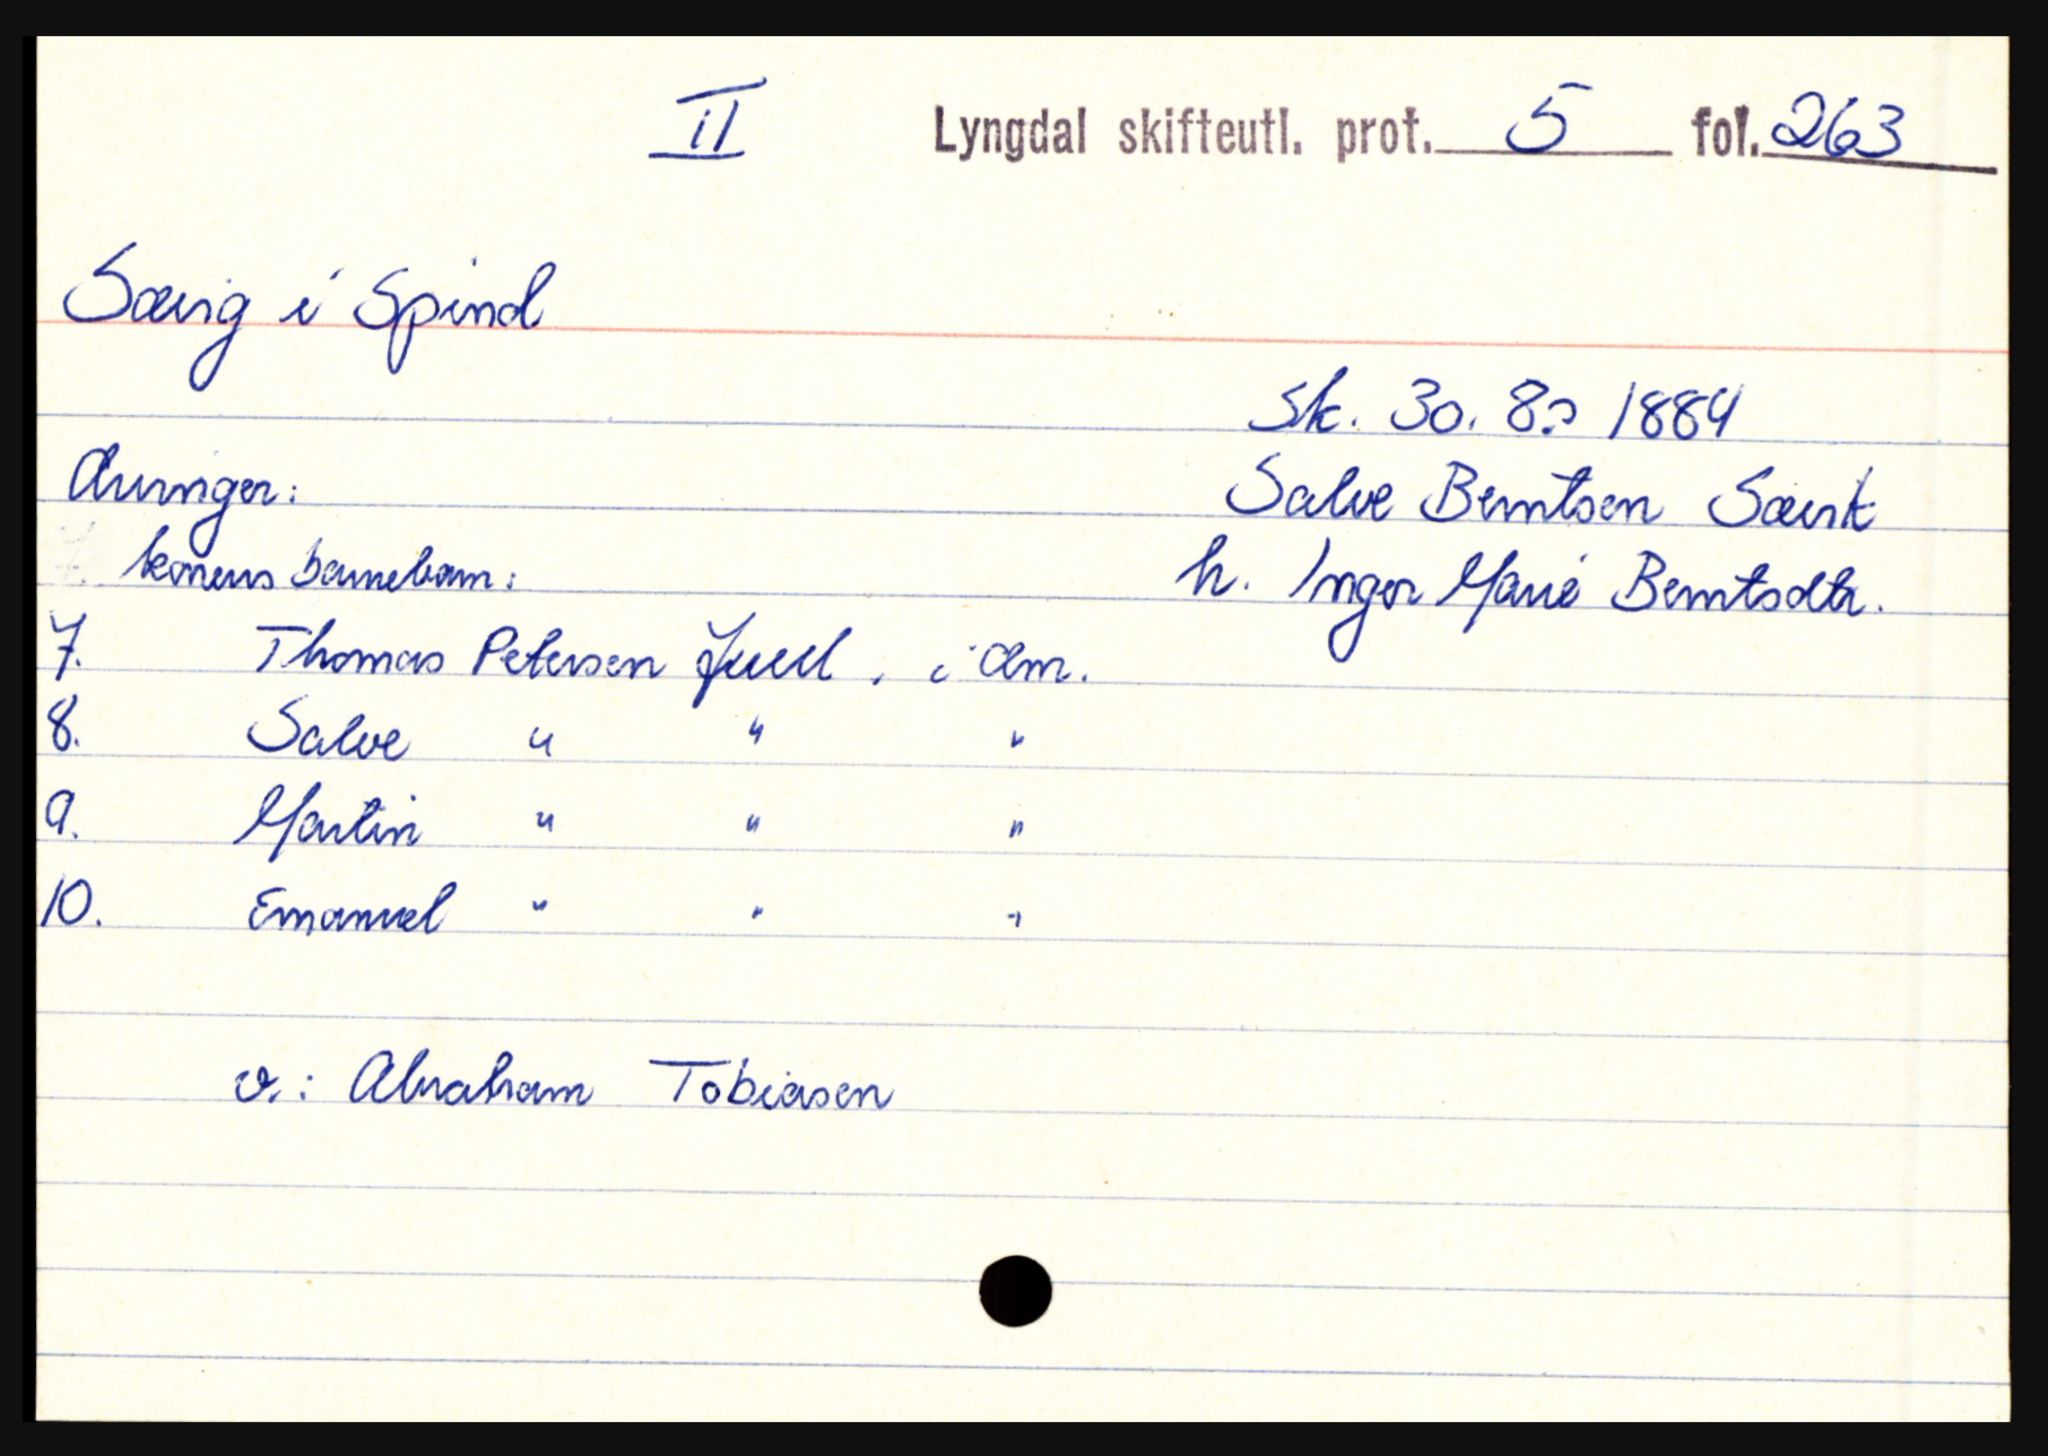 II Lyngdal skifteutl. prot. 5 fol. 263
Sævig i Spind
sk. 30. 8. 1884
Arvinger:
Salve Berntsen Sævik
konens barnebarn:
h. Inger Marie Berntsdtr.
7. Thomas Petersen Juell, i Am.
8. Salve " " "
9. Martin " " "
10. Emanuel " " "
v.: Abraham Tobiasen